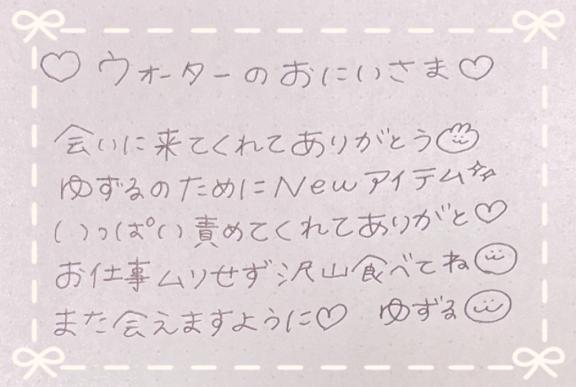 ♡ウォーターのおにいさま♡
会いに来てくれてありがとう
ゆずるのためにNewアイテム☆☆
いっぱい責めてくれてありがと♡
お仕事ムリせず沢山食べてね
また会えますように♡ ゆずる